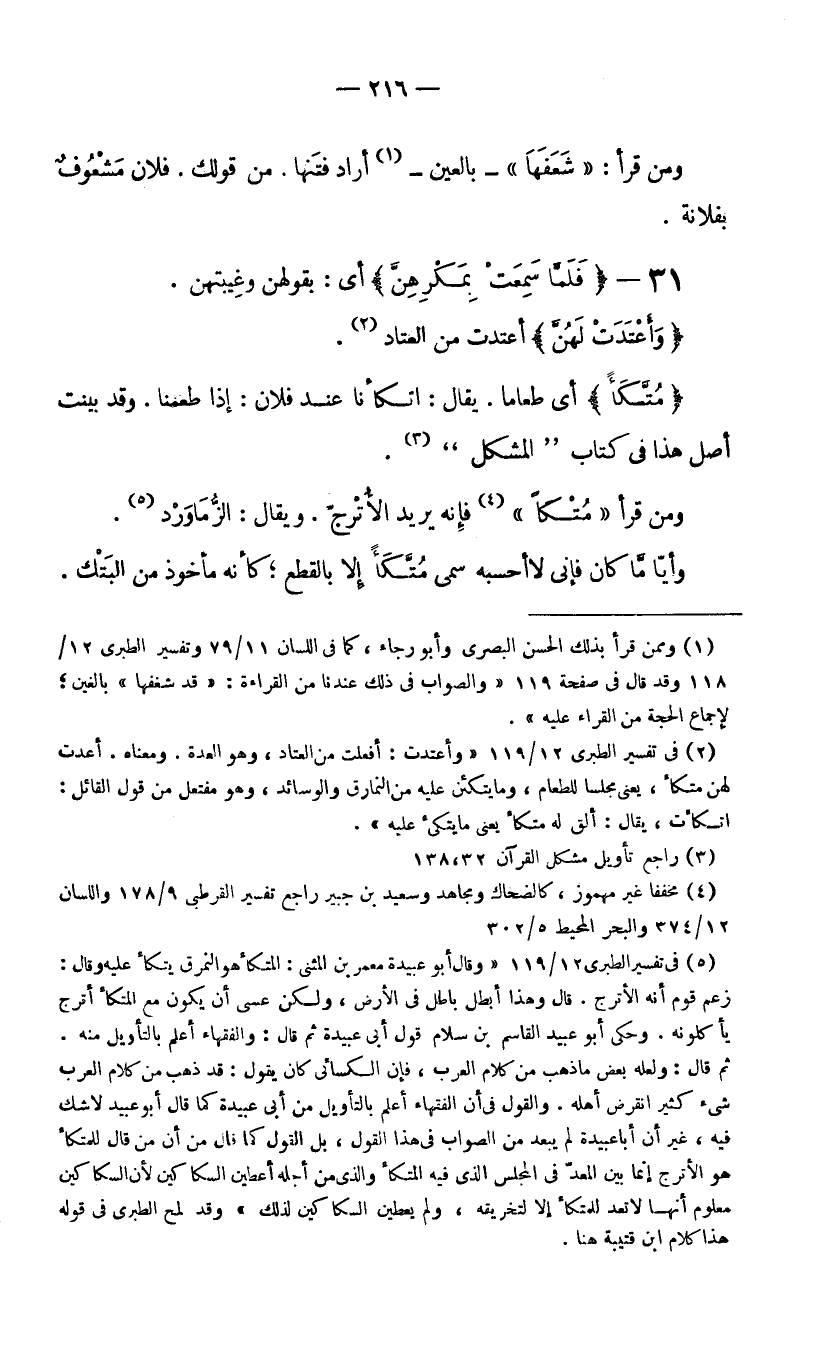 — ٢١٦ —
ومن قرأ : « شَعَفَهَا » ــ بالعين ــ (١) أراد فتَنها . من قولك . فلان مَشْعُوفٌ
بفلانة .
٣١ — ﴿ فَلَمَّا سَمِعَتْ بِمَكْرِهِنَّ ﴾ أى : بقولهن وغِيبتهن .
﴿ وَأَعْتَدَتْ لَهُنَّ ﴾ أعتدت من العتاد (٢) .
﴿ مُتَّكَأً ﴾ أى طعاما . يقال : اتكأنا عند فلان : إذا طعمنا . وقد بينت
أصل هذا فى كتاب ” المشكل “ (٣) .
ومن قرأ « مُتْكاً » (٤) فإنه يريد الأُتْرجّ . ويقال : الزُّمَاوَرْد (٥) .
وأيّا مَّا كان فإنى لاأحسبه سمى مُتَّكَأً إلا بالقطع ؛ كأنه مأخوذ من البَتْك .
(١) وممن قرأ بذلك الحسن البصرى وأبو رجاء ، كما فى اللسان ٧٩/١١ وتفسير الطبرى ١٢/
١١٨ وقد قال فى صفحة ١١٩ « والصواب فى ذلك عندنا من القراءة : « قد شغفها » بالغين ؛
لإجماع الحجة من القراء عليه » .
(٢) فى تفسير الطبرى ١١٩/١٢ « وأعتدت : أفعلت من العتاد ، وهو العدة . ومعناه . أعدت
لهن متكأ ، يعنى مجلسا للطعام ، وما يتكئن عليه من النمارق والوسائد ، وهو مفتعل من قول القائل :
اتكأت ، يقال : ألق له متكأ يعنى مايتكئ عليه » .
(٣) راجع تأويل مشكل القرآن ١٣٨،٣٢
(٤) مخففا غير مهموز ، كالضحاك ومجاهد وسعيد بن جبير راجع تفسير القرطبى ١٧٨/٩ واللسان
٣٧٤/١٢ والبحر المحيط ٣٠٢/٥
(٥) فى تفسير الطبرى ١١٩/١٢ « وقال أبو عبيدة معمر بن المثنى : المتكأ هو النمرق يتكأ عليه وقال :
زعم قوم أنه الأترج . قال وهذا أبطل باطل فى الأرض ، ولكن عسى أن يكون مع المتكأ أترج
يأكلونه . وحكى أبو عبيد القاسم بن سلام قول أبى عبيدة ثم قال : والفقهاء أعلم بالتأويل منه .
ثم قال : ولعله بعض ماذهب من كلام العرب ، فإن الكسائى كان يقول : قد ذهب من كلام العرب
شىء كثير انقرض أهله . والقول فى أن الفقهاء أعلم بالتأويل من أبى عبيدة كما قال أبو عبيد لاشك
فيه ، غير أن أبا عبيدة لم يبعد من الصواب فى هذا القول ، بل القول كما قال من أن من قال للمتكأ
هو الأترج إنما بين المعدّ فى المجلس الذى فيه المتكأ والذى من أجله أعطين السكاكين لأن السكاكين
معلوم أنها لاتعد للمتكأ إلا لتخريقه ، ولم يعطين السكاكين لذلك » وقد لمح الطبرى فى قوله
هذا كلام ابن قتيبة هنا .